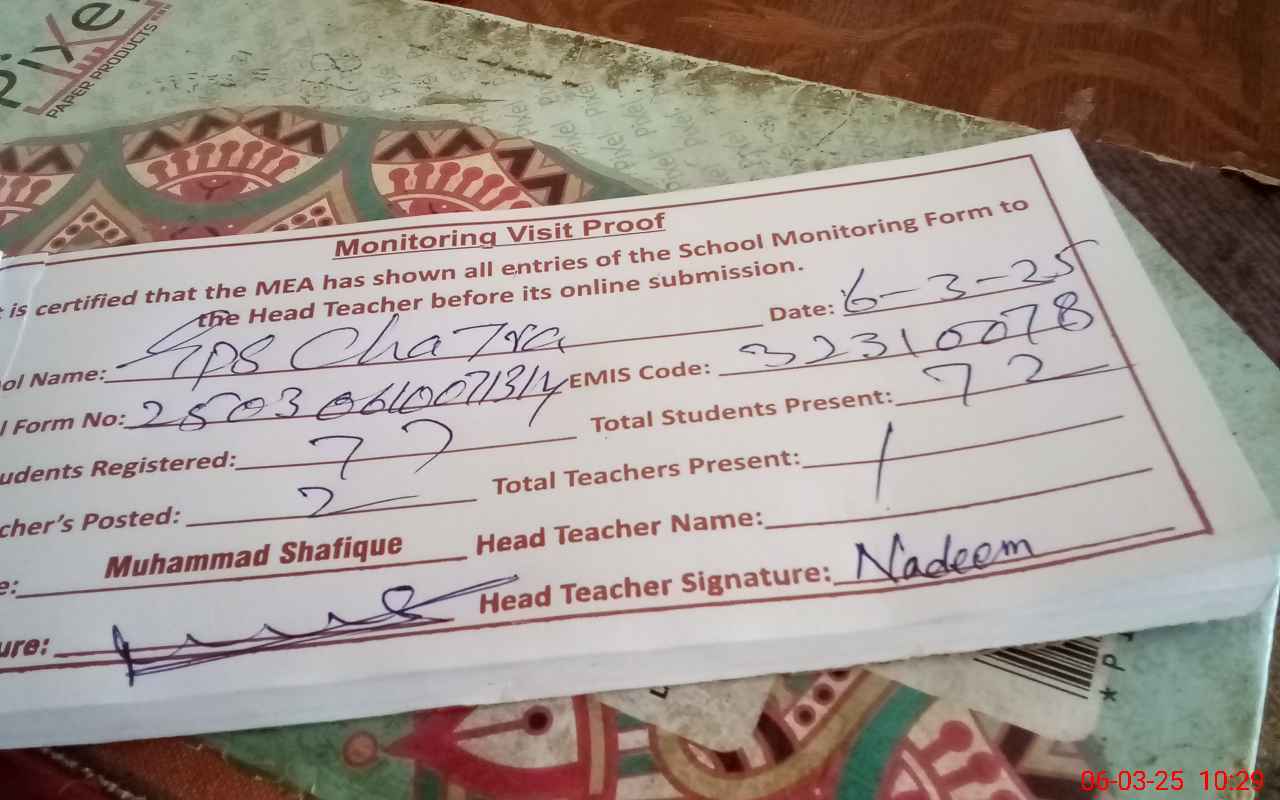 Pixel
PAPER PRODUCTS
Monitoring Visit Proof
is certified that the MEA has shown all entries of the School Monitoring Form to
the Head Teacher before its online submission.
ol Name: GPS Chatra Date: 6-3-25
l Form No: EMIS Code: 32310078
udents Registered: 77 Total Students Present: 72
cher's Posted: 2 Total Teachers Present: 1
e: Muhammad Shafique Head Teacher Name:
ure: Head Teacher Signature: Nadeem
06-03-25 10:29